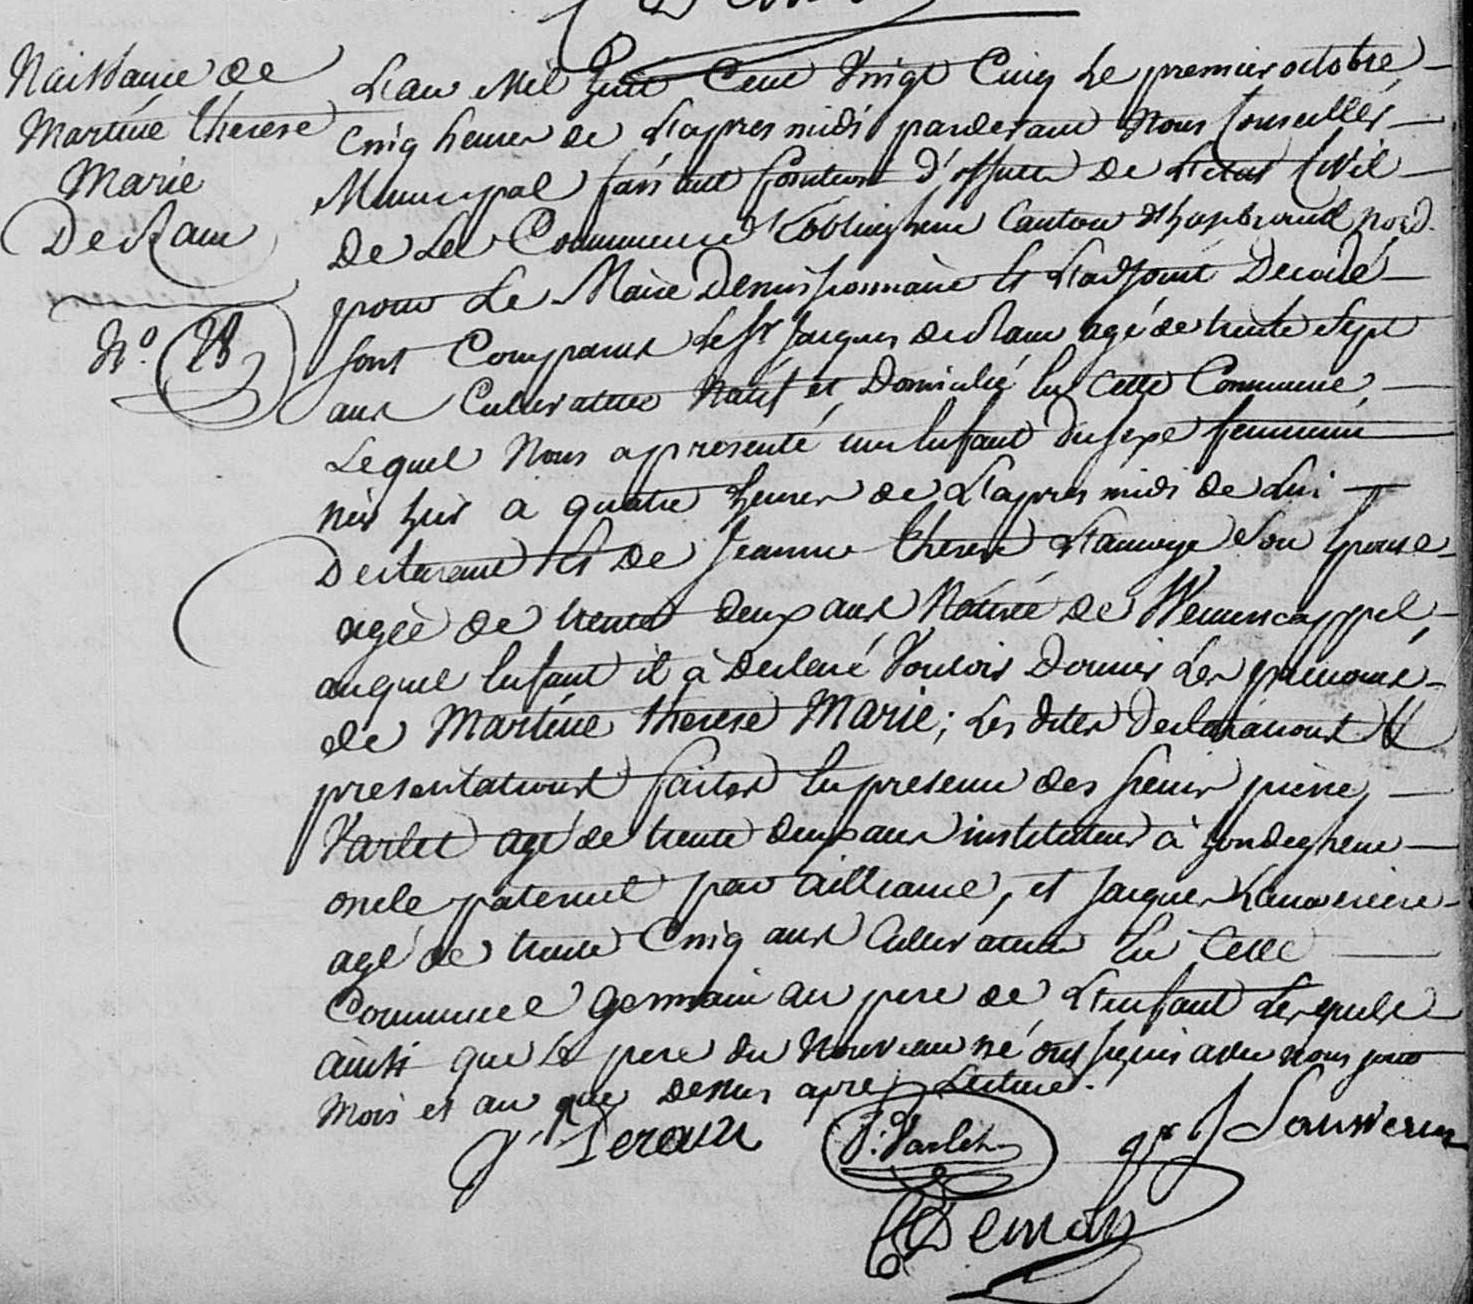 Naissance de
Martine therese
Marie
De Ram
N.o 28
L'an Mil huit Cent Vingt Cinq Le premier octobre
Cinq heures de L'apres midi pardevant Nous Conseiller
Municipal faisant fonction d'officier de L'etat Civil
De La Commune d'Ebblinghem Canton d'hazebrouck Nord.
pour Le Maire Demissionnaire et L'adjoint Decedé
sont Comparus Le Sr Jacques de Ram agé de trente Sept
ans Cultivateur Natif et Domicilié en cette Commune,
Lequel Nous a presenté un Enfant du sexe feminin
née hier à quatre heures de L'apres midi de Lui
Declarant et De Jeanne therese son Epouse
agée de trente deux ans Native de Wemerscappel,
auquel Enfant il à Declaré Vouloir Donner Les prenoms
de Martine therese Marie; Les dites Declarations et
presentations faites En presence des sieurs pierre
Varlet agé de trente deux ans instituteur à hondeghem
oncle paternel par ailliance, et Jacques
agé de trente Cinq ans Cultivateur En Cette
Commune germain au pere de L'enfant Lesquels
ainsi que Le pere du Nouveau né ont signé avec nous jour
Mois et an que dessus apres Lecture.
J. Deram
P. Varlet
Demon